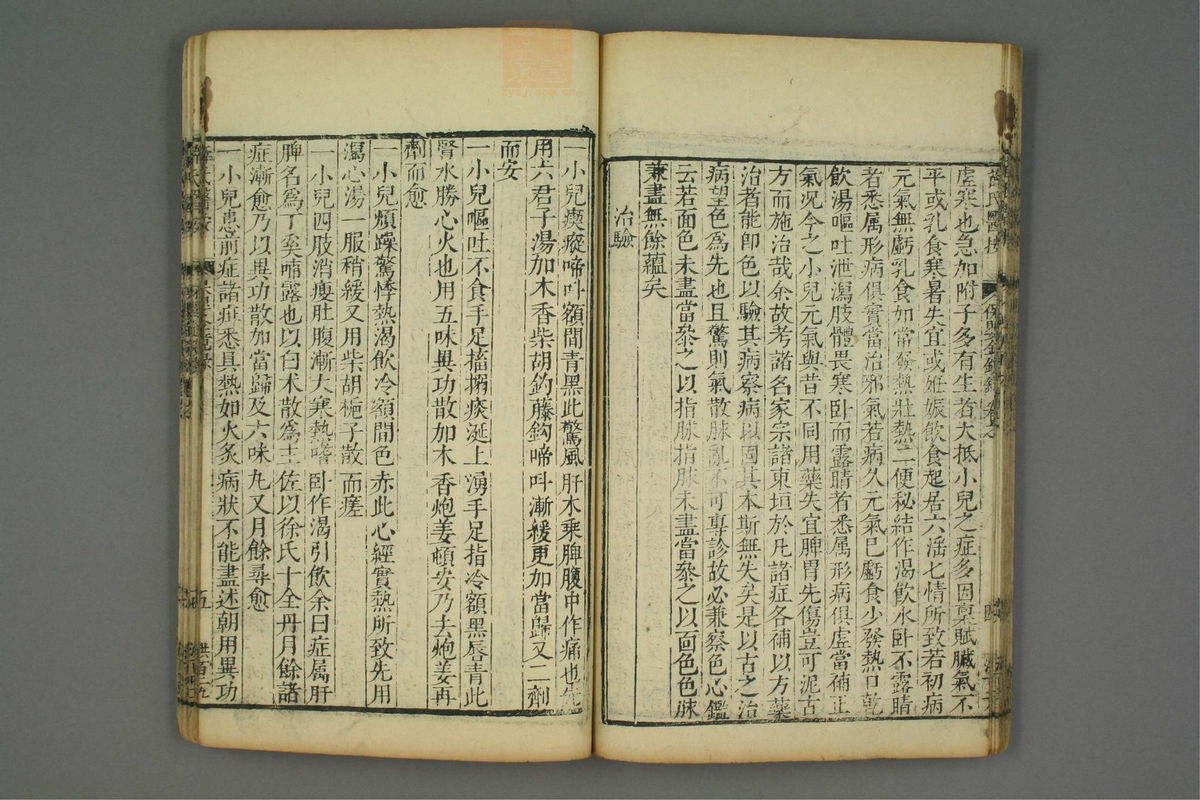 虚寒也急加附子多有生若大抵小兒之症多因稟賦臟氣不
平或乳食寒暑失宜或姙娠飲食起居六淫七情所致若初病
元氣無虧乳食如常發熱壯熱二便秘結作渴飲水卧不露睛
者悉属形病俱實當治邪氣若病久元氣已虧食少發熱口乾
飲湯嘔吐泄瀉肢體畏寒卧而露睛者悉属形病俱虚當補正
氣况今之小兒元氣與昔不同用藥失宜脾胃先傷豈可泥古
方而施治哉余故考諸名家宗諸東垣於凡諸症各補以方藥
治者能即色以驗其病察病以固其本斯無失矣是以古之治
病望色爲先也且驚則氣散脉亂不可專診故必兼察色心鑑
云若面色未盡當叅之以指脉指脉未盡當叅之以面色色脉
兼盡無餘蘊矣
治驗
一小兒瘈瘲啼呌額間青黑此驚風肝木乘脾腹中作痛也先
用六君子湯加木香柴胡鈎藤鈎啼呌漸緩更加當歸又二劑
而安
一小兒嘔吐不食手足搐搦痰涎上湧手足指冷額黑唇青此
腎水勝心火也用五味異功散加木香炮姜頓安乃去炮姜再
劑而愈
一小兒煩躁驚悸熱渴飲冷額間色赤此心經實熱所致先用
瀉心湯一服稍緩又用柴胡梔子散而瘥
一小兒四肢消瘦肚腹漸大寒熱嗜卧作渴引飲余曰症属肝
脾名爲丁奚哺露也以白术散爲主佐以徐氏十全丹月餘諸
症漸愈乃以異功散加當歸及六味丸又月餘尋愈
一小兒患前症諸症悉具熱如火炙病狀不能盡述朝用異功